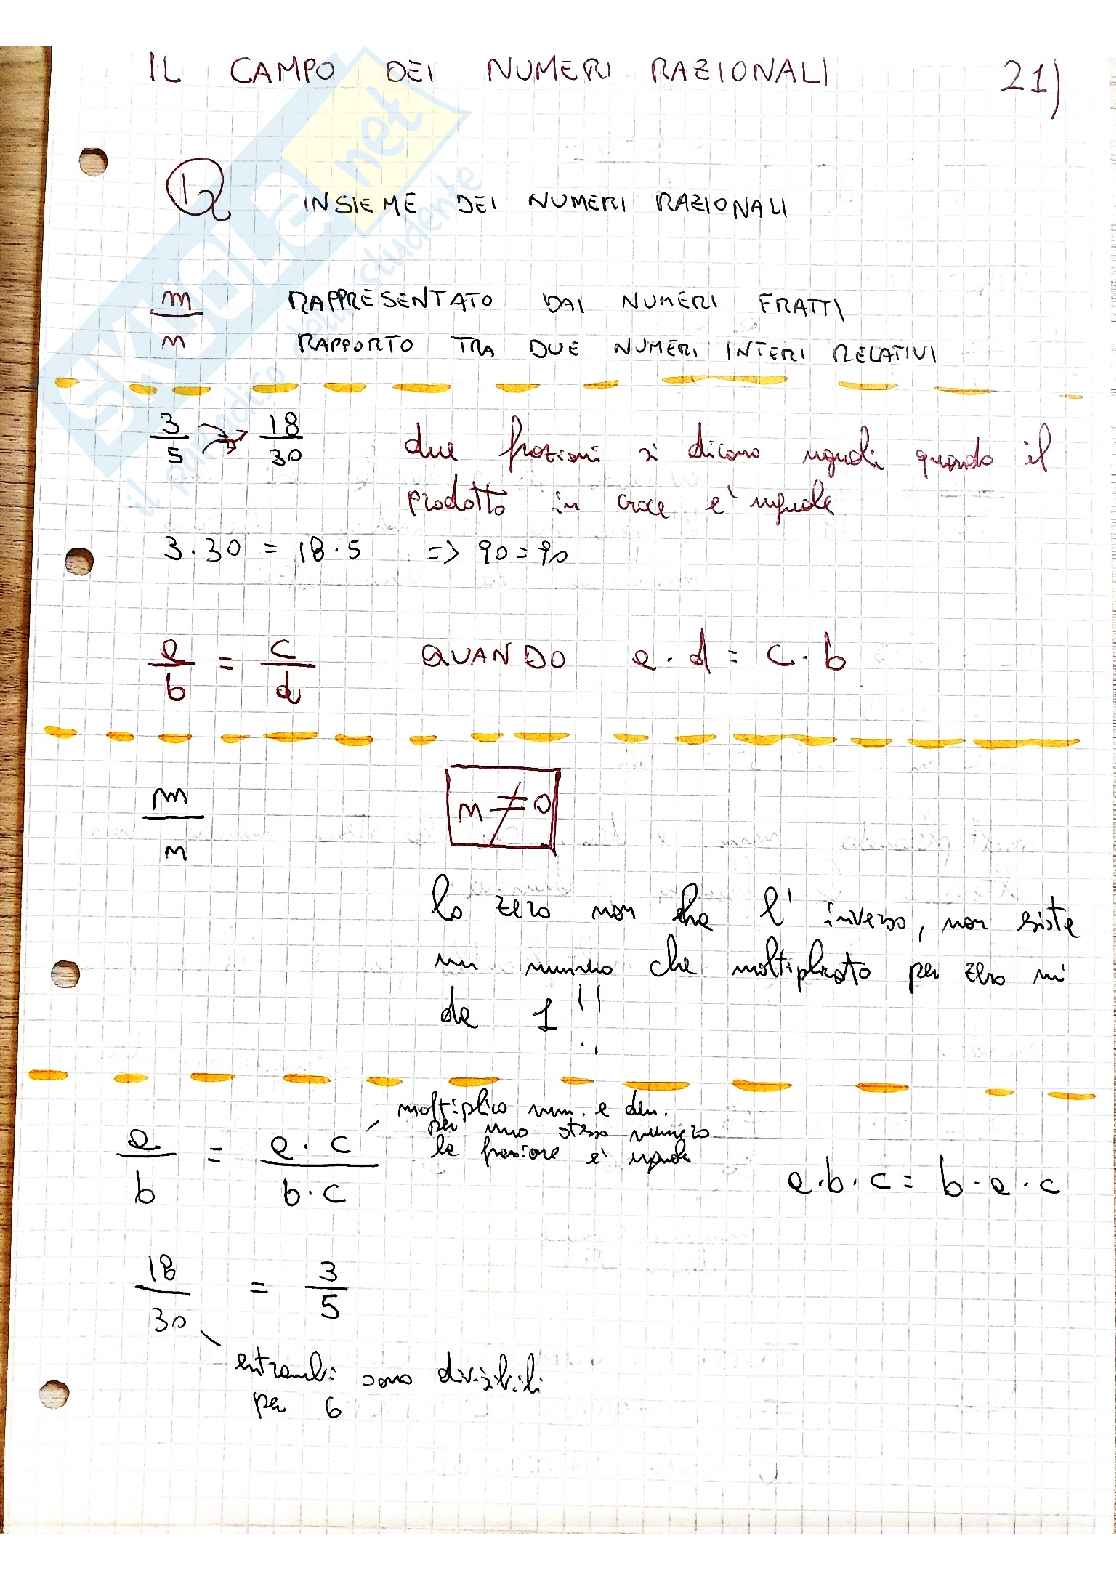 IL CAMPO DEI NUMERI RAZIONALI 21)
Q INSIEME DEI NUMERI RAZIONALI
m RAPPRESENTATO DAI NUMERI FRATTI
n RAPPORTO TRA DUE NUMERI INTERI RELATIVI
3/5 18/30 due frazioni si dicono uguali quando il
prodotto in croce e' uguale
3·30 = 18·5 => 90=90
a/b = c/d QUANDO a·d = c·b
m/n n≠0
lo zero non ha l' inverso, non esiste
un numero che moltiplicato per zero mi
da 1!!
moltiplico num. e den.
per uno stesso numero
la frazione e' uguale
a/b = a·c/b·c a·b·c = b·a·c
18/30 = 3/5
entrambi sono divisibili
per 6
SKUOLA.net